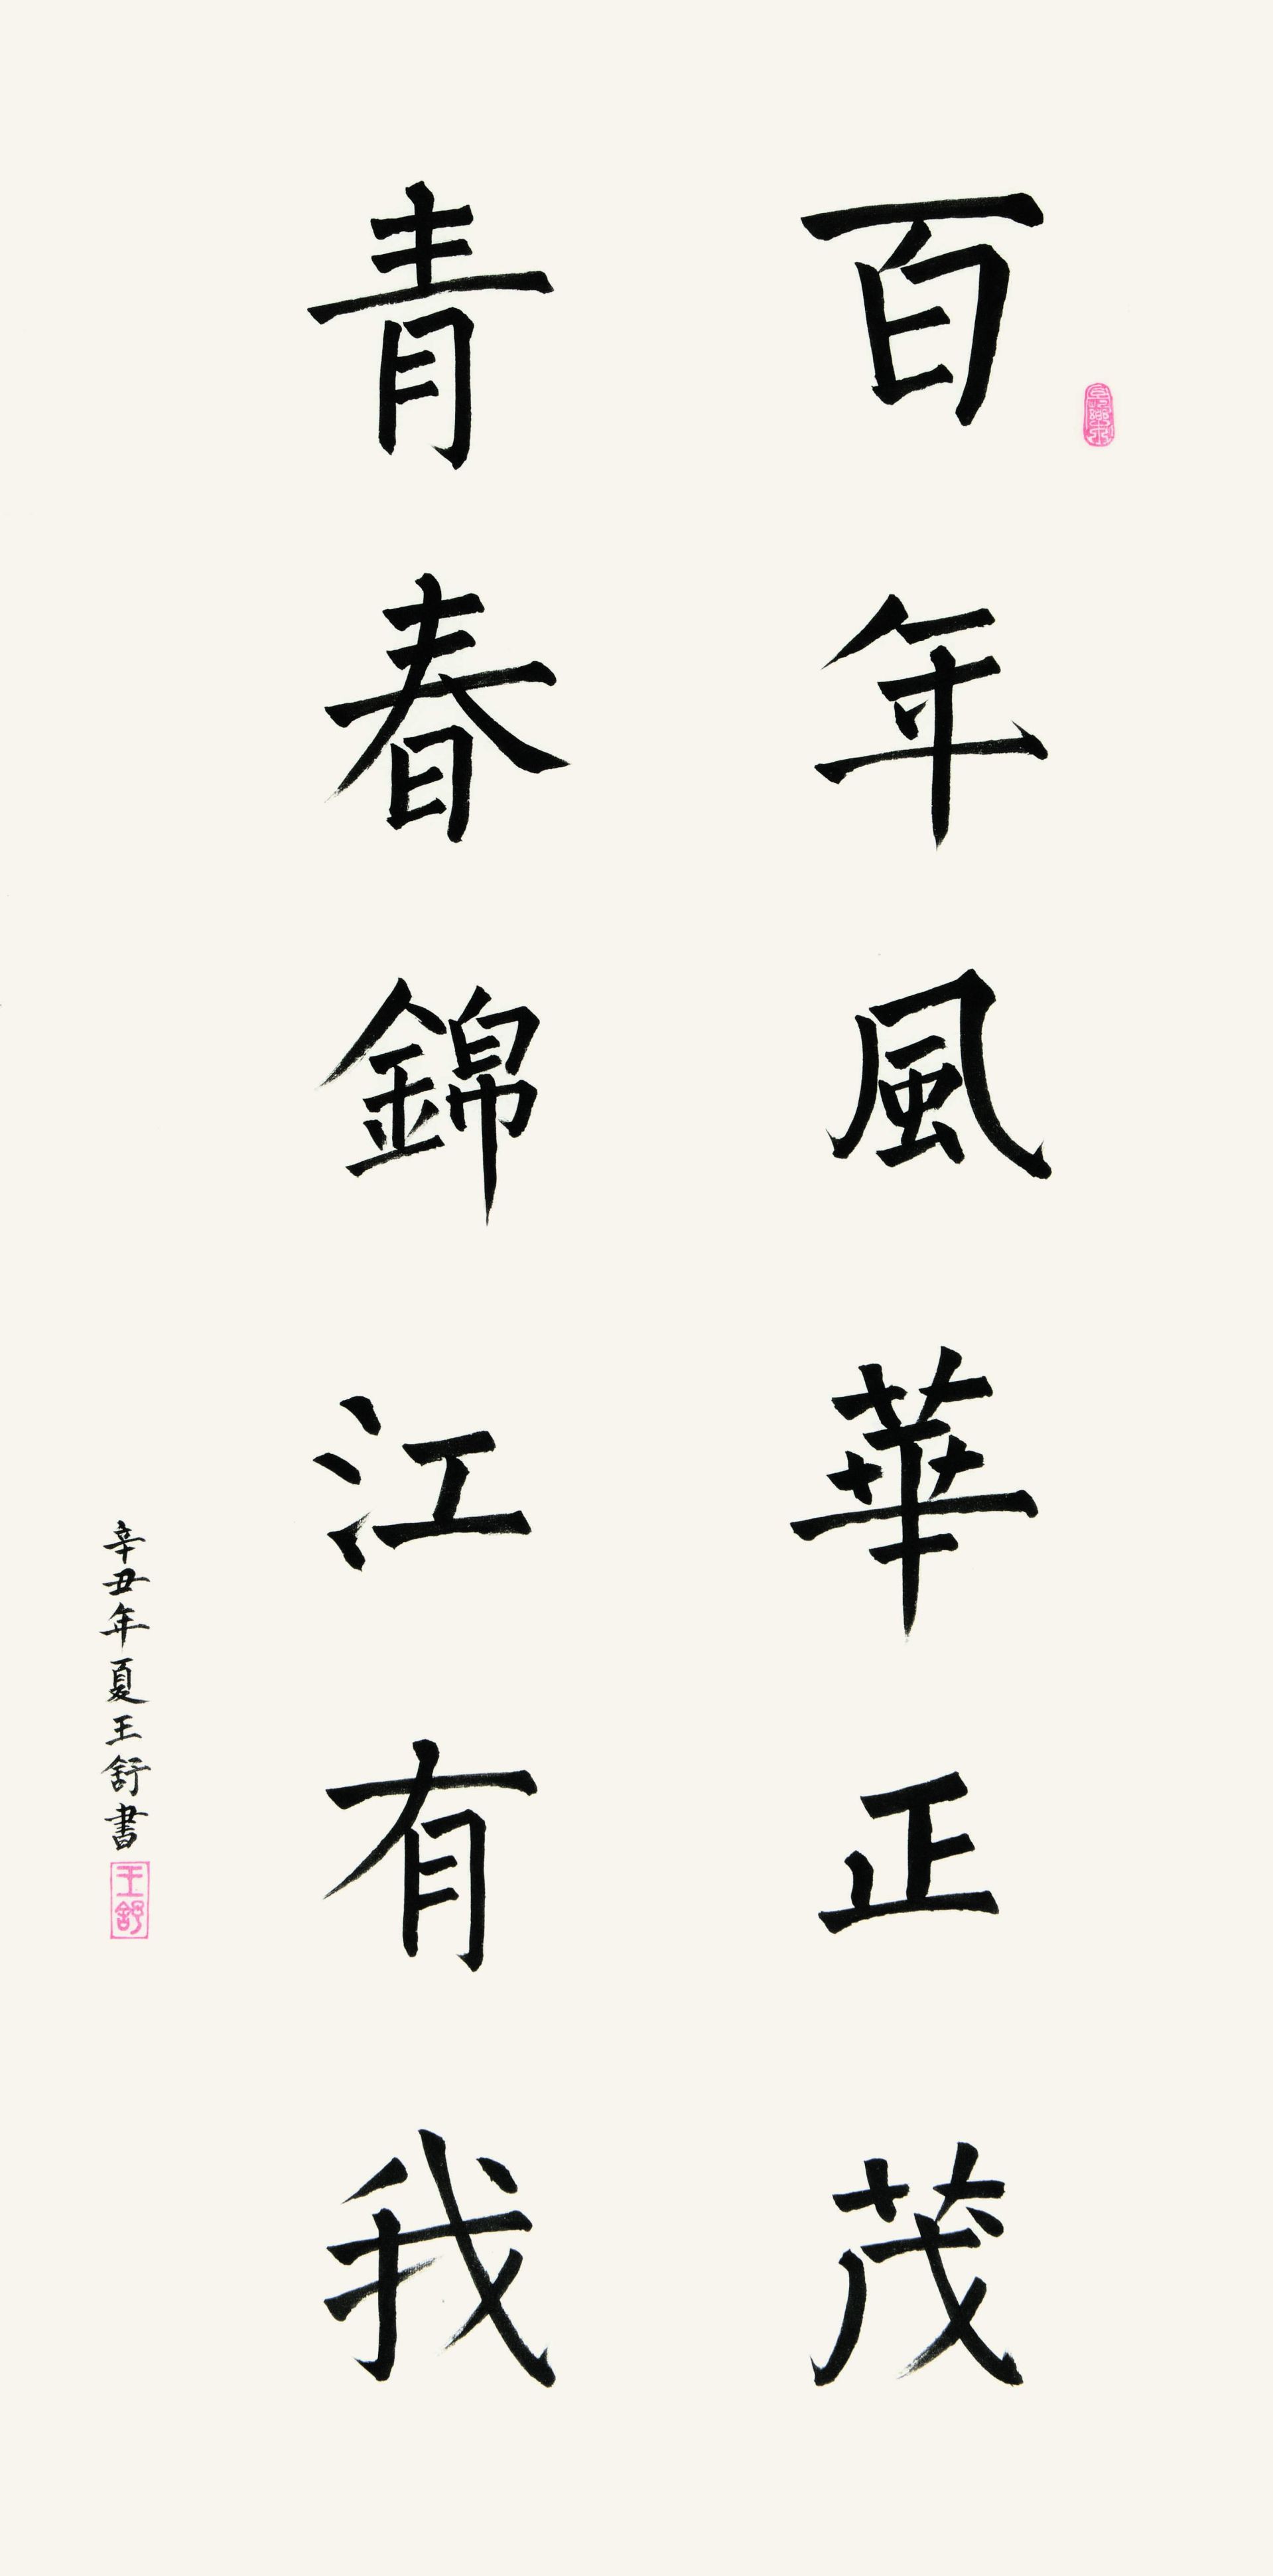 百年風華正茂
青春錦江有我
辛丑年夏王舒書
王舒